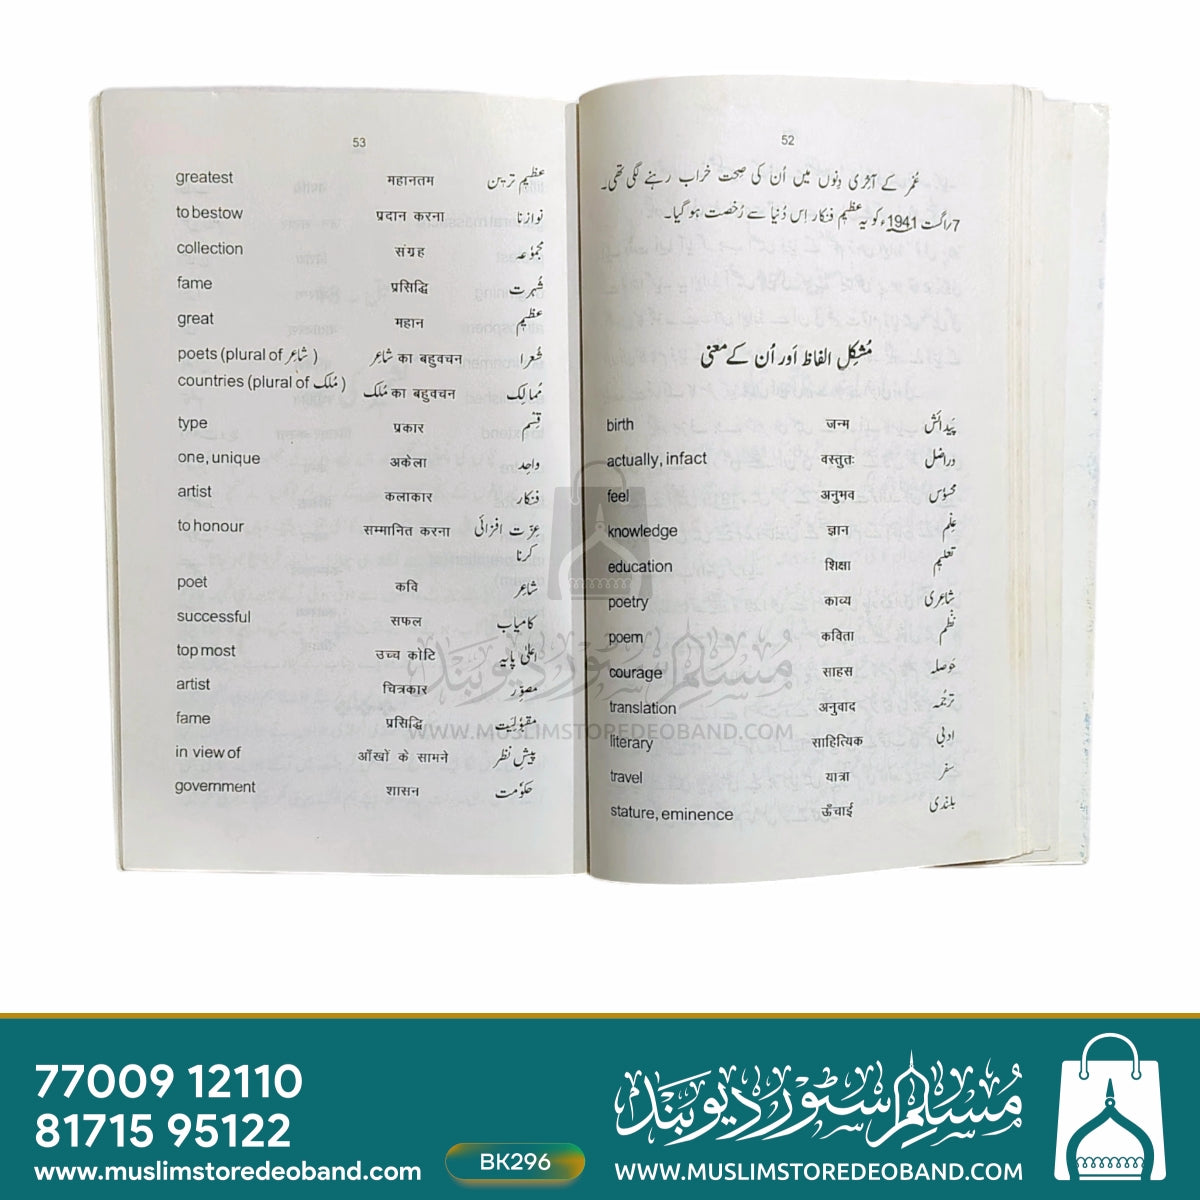 52
عُمْر کے آخری دِنوں میں اُن کی صحت خراب رہنے لگی تھی۔
7/اگست 1941ء کو یہ عظیم فنکار اِس دُنیا سے رُخصت ہو گیا۔
مُشکِل الفاظ اَور اُن کے معنی
birth जन्म پَیدائش
actually, infact वस्तुतः دراصل
feel अनुभव محسُوس
knowledge ज्ञान عِلْم
education शिक्षा تعلیم
poetry काव्य شاعِری
poem कविता نَظْم
courage साहस حَوصلہ
translation अनुवाद ترجُمہ
literary साहित्यिक ادبی
travel यात्रा سفر
stature, eminence ऊँचाई بلندی
53
greatest महानतम عظیم ترین
to bestow प्रदान करना نوازنا
collection संग्रह مجمُوعہ
fame प्रसिद्धि شُہرت
great महान عظیم
poets (plural of شاعِر ) شاعِر का बहुवचन شُعرا
countries (plural of مُلک ) مُلک का बहुवचन مُمالِک
type प्रकार قِسْم
one, unique अकेला واحِد
artist कलाकार فنکار
to honour सम्मानित करना عِزّت افزائی
کرنا
poet कवि شاعِر
successful सफल کامیاب
top most उच्च कोटि اعلٰی پایہ
artist चित्रकार مصوِّر
fame प्रसिद्धि مقبُولیَت
in view of आँखों के सामने پیشِ نظر
government शासन حکُومت
مُسلم سٹور دیوبند
WWW.MUSLIMSTOREDEOBAND.COM
77009 12110
81715 95122
www.muslimstoredeoband.com
BK296
مُسلم سٹور دیوبند
WWW.MUSLIMSTOREDEOBAND.COM